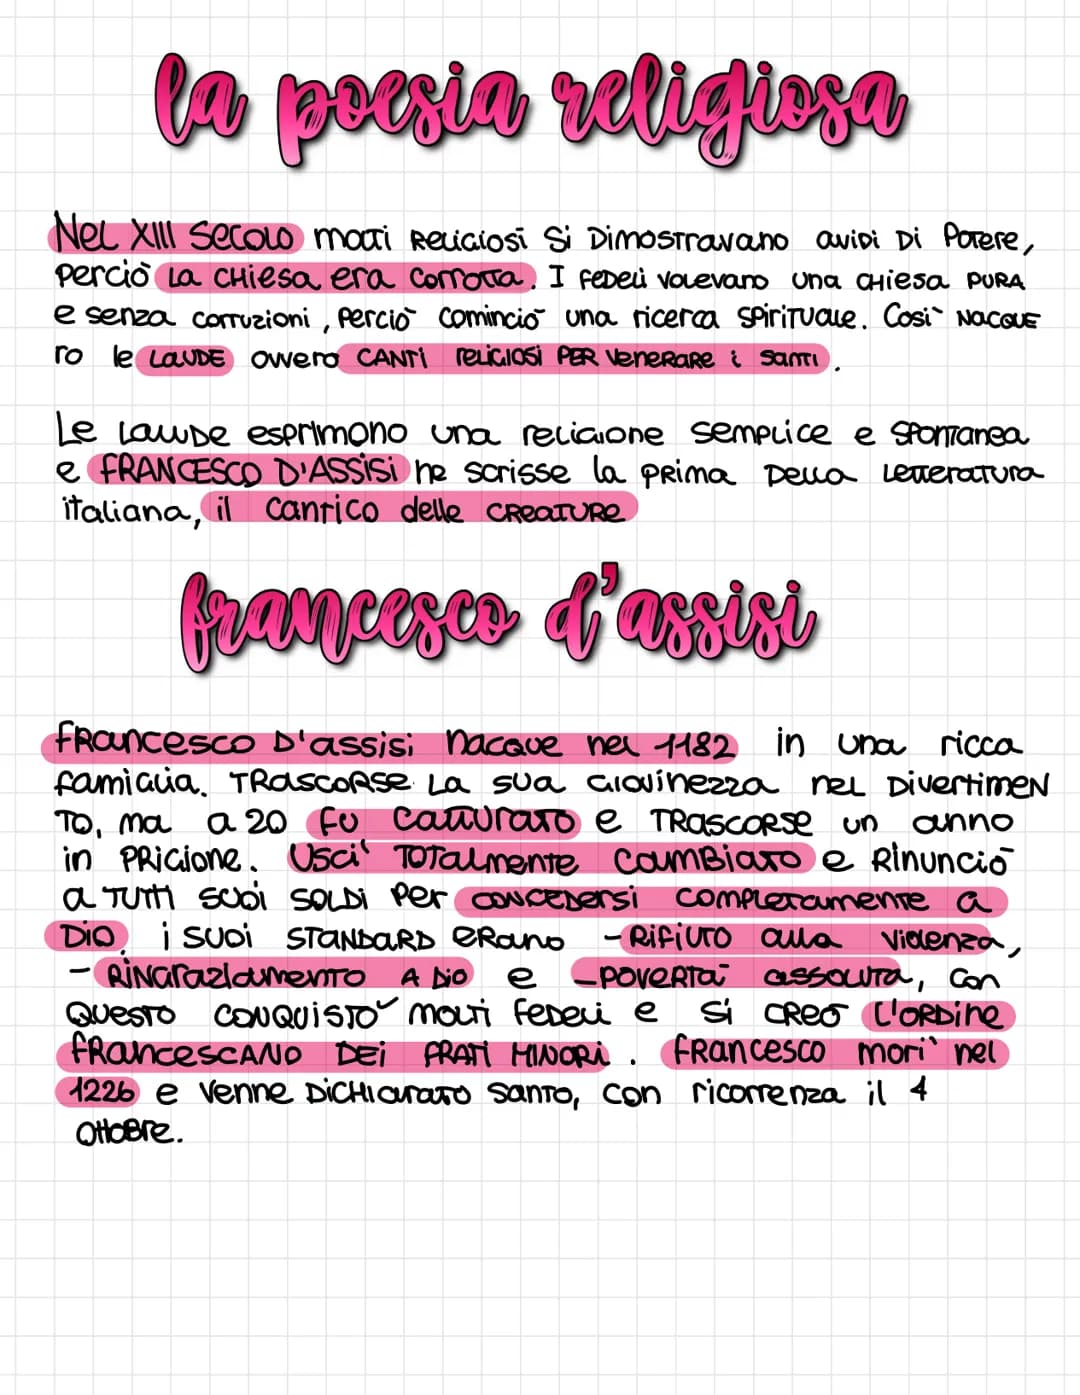 la poesia religiosa
Nel XIII secolo molti religiosi si dimostravano avidi di potere,
perciò la chiesa era corrotta. I fedeli volevano una chiesa pura
e senza corruzioni, perciò cominciò una ricerca spirituale. Così nacque
ro le laude ovvero canti religiosi per venerare i santi.
Le laude esprimono una religione semplice e spontanea
e FRANCESCO D'ASSISI ne scrisse la prima della letteratura
italiana, il cantico delle creature
francesco d'assisi
Francesco d'assisi nacque nel 1182 in una ricca
famiglia. Trascorse la sua giovinezza nel divertimen
to, ma a 20 fu catturato e trascorse un anno
in prigione. Uscì totalmente cambiato e rinunciò
a tutti suoi soldi per concedersi completamente a
Dio i suoi standard erano - Rifiuto alla violenza,
- Ringraziamento a Dio e - povertà assoluta, con
questo conquistò molti fedeli e si creò l'ordine
francescano dei frati minori. Francesco morì nel
1226 e venne dichiarato santo, con ricorrenza il 4
ottobre.